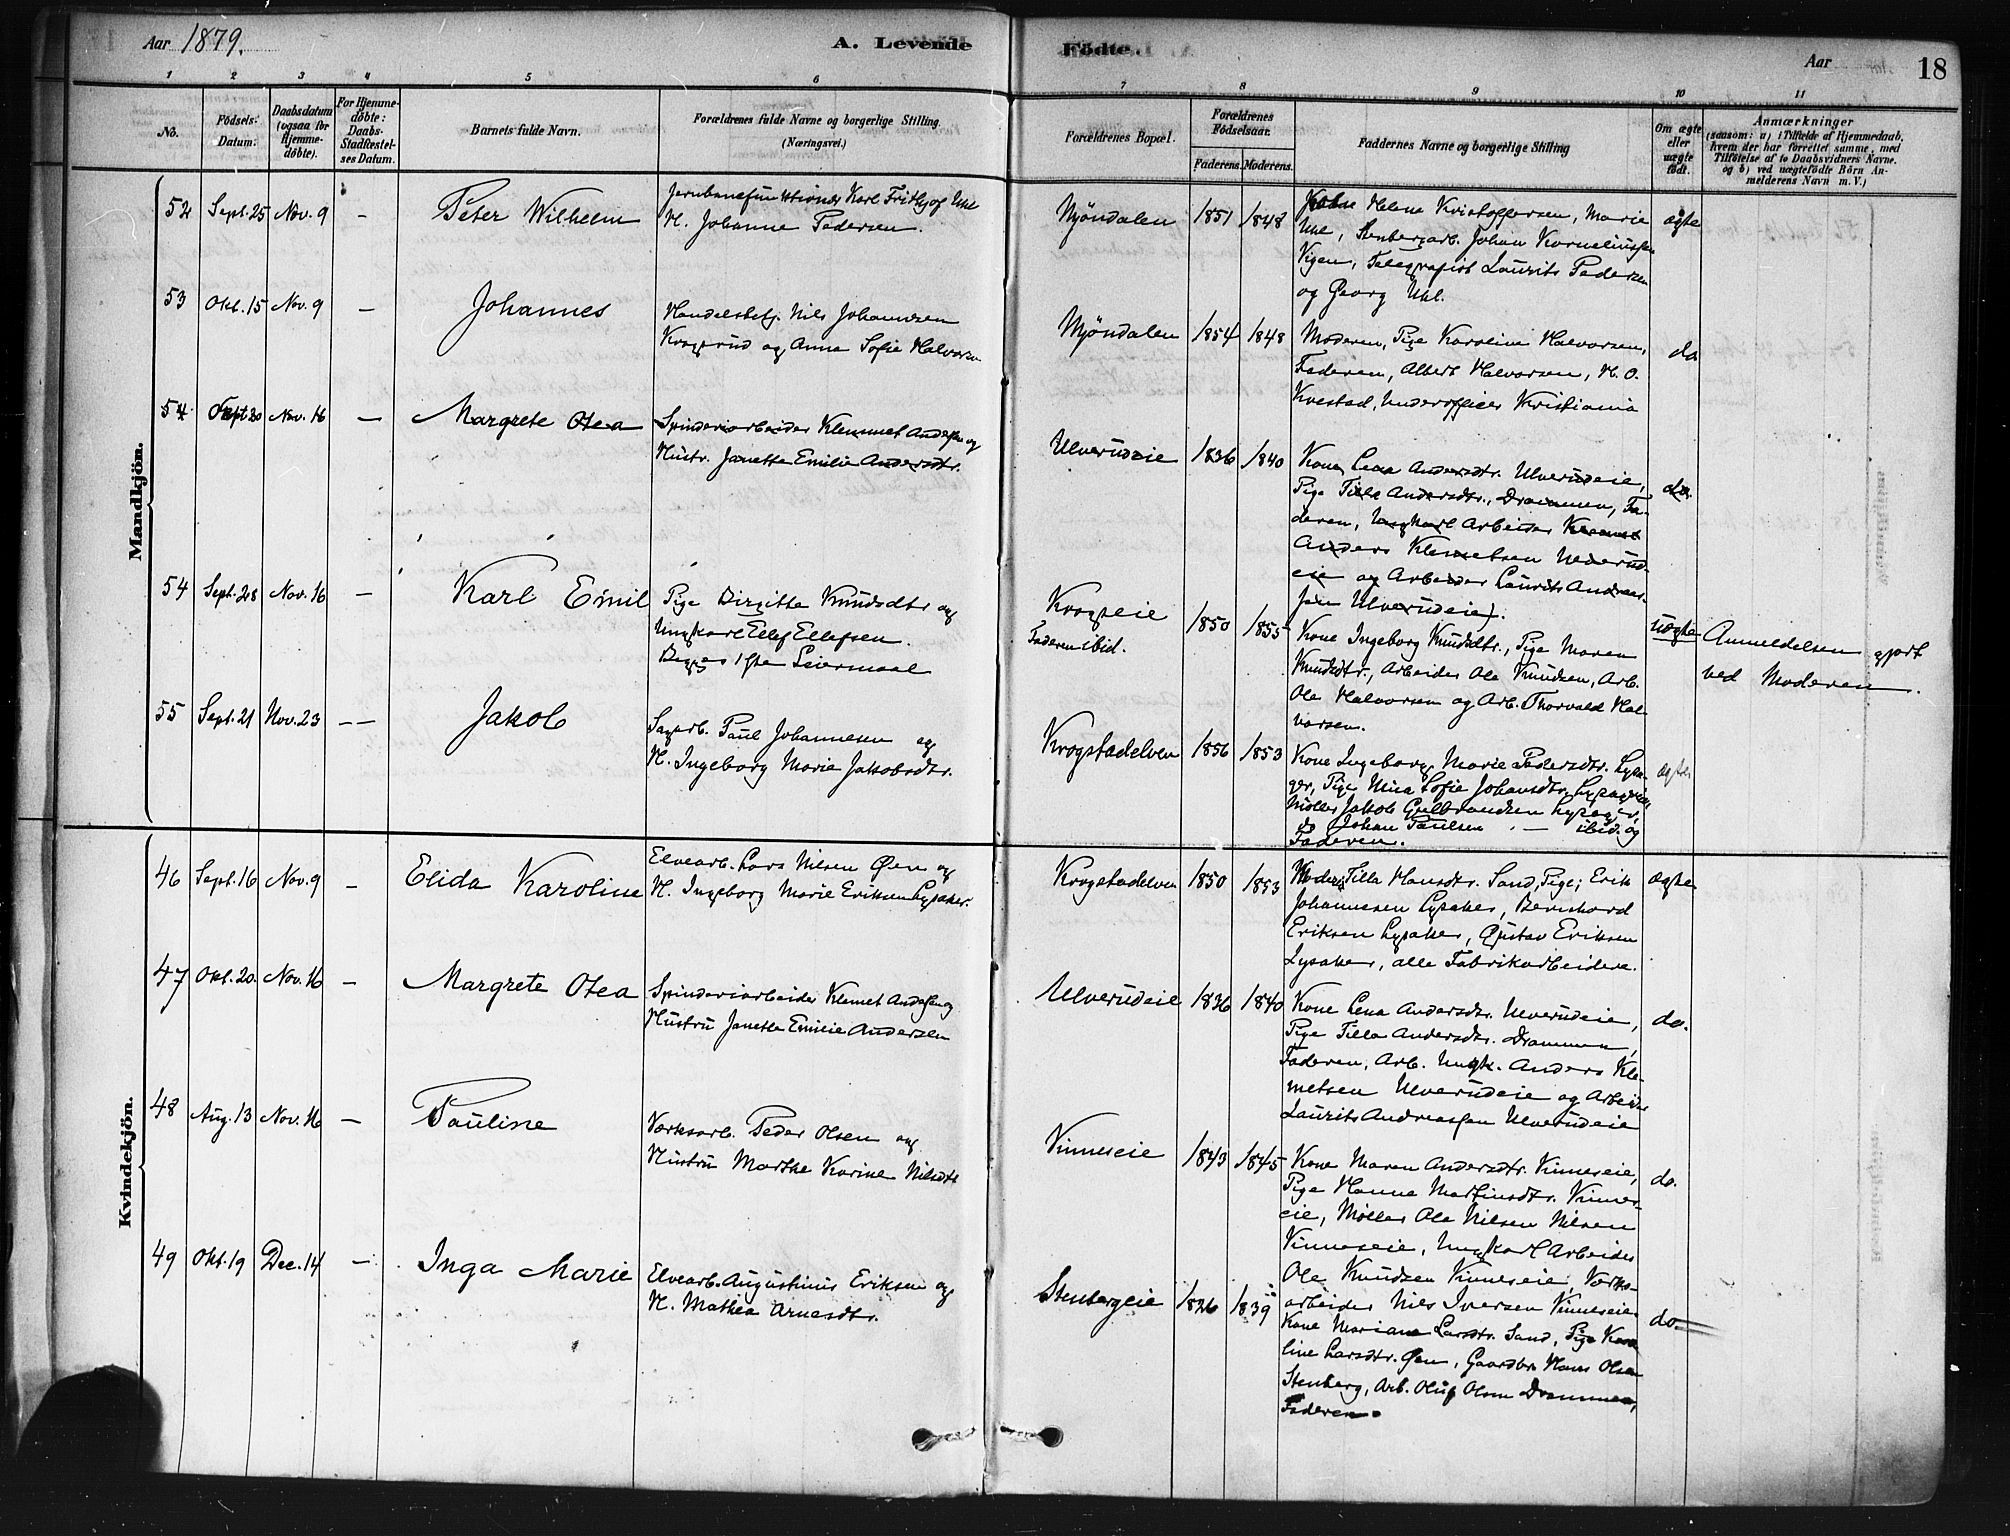 Aar 1879.
A. Levende
Födte.
Aar
18
1 2 3 4 5 6 7 8 9 10 11
No.
Födsels-Datum:
Daabsdatum (ogsaa for Hjemme-döbte).
For Hjemme-döbte: Daabs-Stadfæstel-ses Datum.
Barnets fulde Navn.
Forældrenes fulde Navne og borgerlige Stilling. (Næringsvei.)
Forældrenes Bopæl.
Forældrenes Födselsaar.
Faderens. Moderens.
Faddernes Navne og borgerlige Stilling
Om ægte eller uægte födt.
Anmærkninger
(saasom: a) i Tilfælde af Hjemmedaab,
hvem der har forrettet samme, med
Tilföielse af to Daabsvidners Navne.
og b) ved uægtefödte Börn An-
melderens Navn m. V.)
Mandkjön.
52 Sept. 25 Nov. 9 – Peter Wilhelm
Karl Frithjof Uhl
H. Johanne Pedersen.
Mjöndalen 1851 1848
Helene Kristoffersen, Marie
Uhl, Stenbergarb. Johan Korneliussen
Vigen, Telegrafist Laurits Pedersen
og Georg Uhl.
ægte
53 Okt. 15 Nov. 9 – Johannes
Handelsbetj. Nils Johannesen
Krogsrud og Anna Sofie Halvorsen
Mjöndalen 1854 1848
Moderen, Pige Karoline Halvorsen,
Faderen, Albert Halvorsen, H. O.
Kvestad, Underofficer Kristiania
do
54 Nov. 16 – Margrete Otea
Spinderiarbeider Klemmet Andersen og
Hustr. Janette Emilie Andersdtr.
Ulverudeie 1836 1840
Kone Lena Andersdtr. Ulverudeie,
Pige Tilla Andersdtr., Drammen, Fa-
deren, Ungkarl Arbeider
Anders Klemetsen Ulverud-
eie og Arbeider Laurits Andreas-
sen Ulverudeie).
do.
54 Sept. 28 Nov. 16 – Karl Emil
Pige Birgitte Knudsdtr og
Ungkarl Ellef Ellefsen.
Begges 1ste Leiermaal
Krogseie
Faderen ibid.
1850 1855
Kone Ingeborg Knudsdtr., Pige Maren
Knudsdtr., Arbeider Ole Knudsen, Arb.
Ole Halvorsen og Arb. Thorvald Hal-
vorsen.
uægte
Anmeldelsen gjort
ved Moderen.
55 Sept. 21 Nov. 23 – – Jakob
Sagarb. Paul Johannesen og
H. Ingeborg Marie Jakobsdtr.
Krogstadelven 1856 1853
Kone Ingeborg Marie Pedersdtr. Lysa-
ger, Pige Mina Sofie Johansdtr.
Möller Jakob Gulbrandsen Lysager,
do Johan Paulsen – ibid. og
Faderen.
ægte
Kvindekjön.
46 Sept. 16 Nov. 9 – Elida Karoline
Elvearb. Lars Nilsen Øen og
H. Ingeborg Marie Eriksen Lysaker.
Krogstadelven 1850 1853
Moder, Tilla Hansdtr. Sand, Pige; Erik
Johannesen Lysaker, Bernhard
Eriksen Lysaker, Gustav Eriksen
Lysaker, alle Fabrikarbeidere.
ægte
47 Okt. 20. Nov. 16 – Margrete Otea
Spinderiarbeider Klemet Andersen og
Hustru Janette Emilie Andersen
Ulverudeie 1836 1840
Kone Lena Andersdtr. Ulverudeie,
Pige Tilla Andersdtr. Drammen,
Faderen, Arb. Ungk. Anders Kle-
metsen Ulverudeie og Arbeider
Laurits Andreassen Ulverudeie
do.
48 Aug. 13 Nov. 16 – Pauline
Værksarb. Peder Olsen og
Hustru Marthe Karine Nilsdtr
Vinneseie 1843 1845
Kone Maren Andersdtr. Vinneseie,
Pige Hanna Martinsdtr. Vinnes-
eie, Möller Ole Nilsen Nilsen
Vinneseie, Ungkarl Arbeider
Ole Knudsen Vinneseie, Værks-
arbeider Nils Iversen Vinneseie
do.
49 Okt. 19 Dec. 14 – Inga Marie
Elvearb. Augustinus Eriksen og
H. Mathea Arnesdtr.
Stenbergeie 1826 1839
Kone Mariane Larsdtr. Sand, Pige Karo-
line Larsdtr. Øen, Gaardbr. Hans Olsen
Stenberg, Arb. Oluf Olsen Drammen,
Faderen.
do